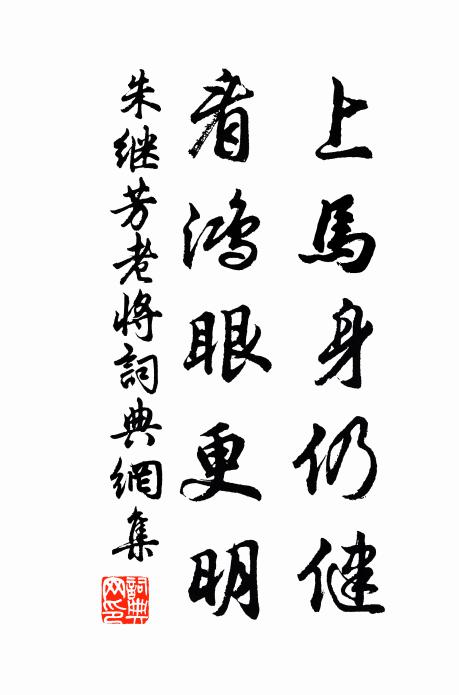 上馬身仍健
看鴻眼更明
朱继芳老將詞典網集
詞典
网印